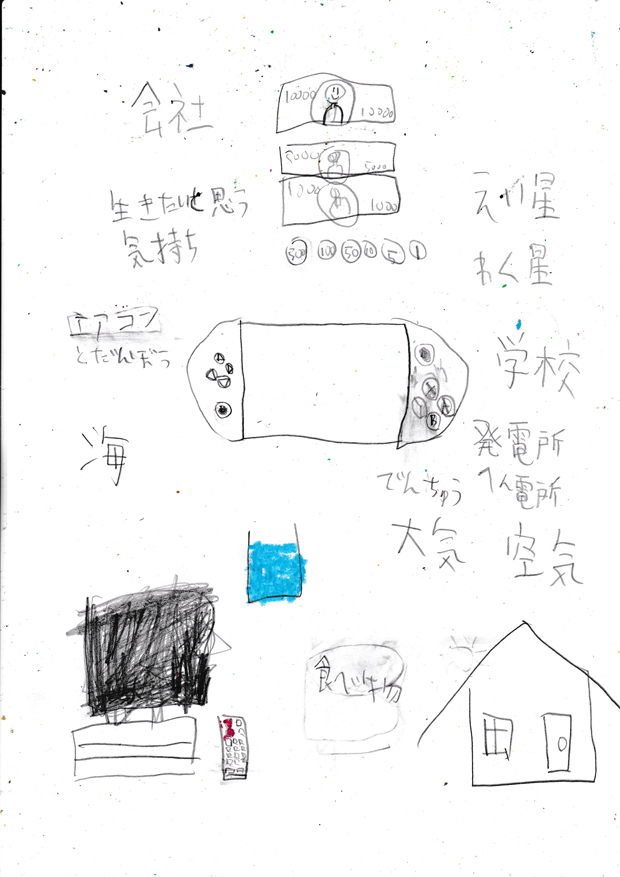 会社
10000
10000
5000
5000
1000
1000
500 100 50 10 5 1
生きたいと思う
気持ち
わく星
エアコン
とだんぼう
X
A
B
学校
海
発電所
へん電所
でんちゅう
大気
空気
食べ物